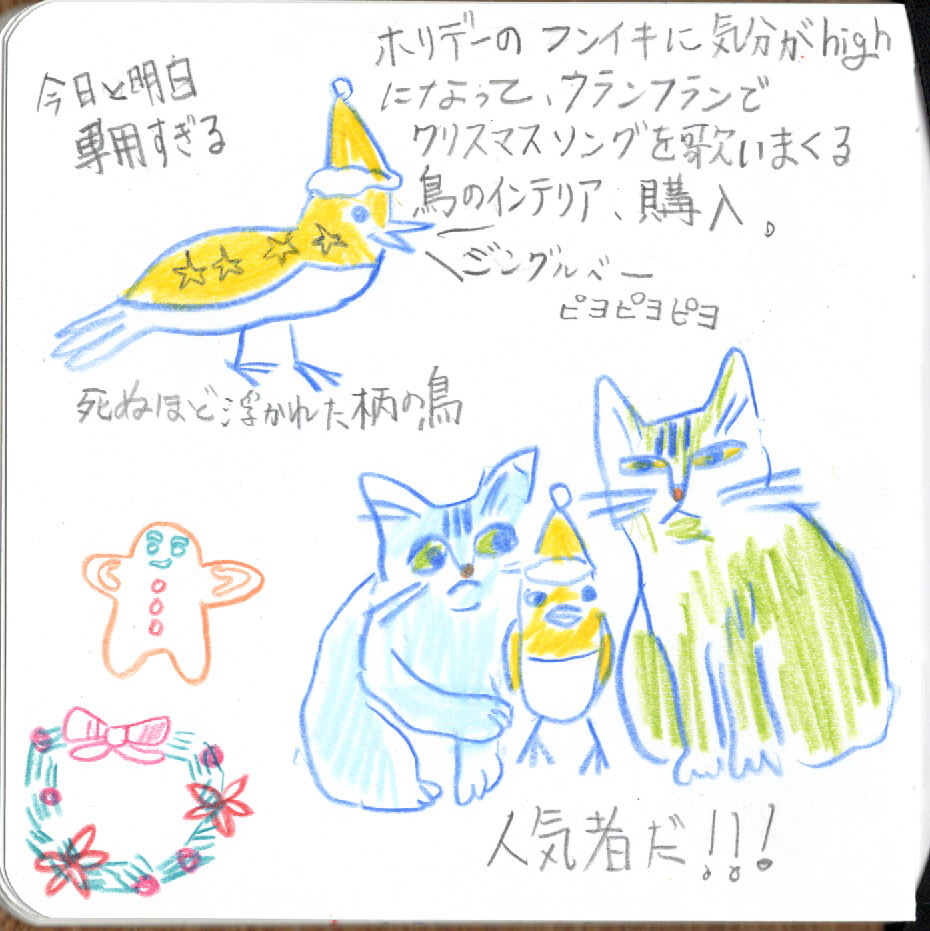 今日と明日
専用すぎる
ホリデーの フンイキに気分がhigh
になって、ウランフランで
クリスマスソングを歌いまくる
鳥のインテリア、購入。
ジングルベー
ピヨピヨピヨ
死ぬほど浮かれた柄の鳥
人気者だ!!!